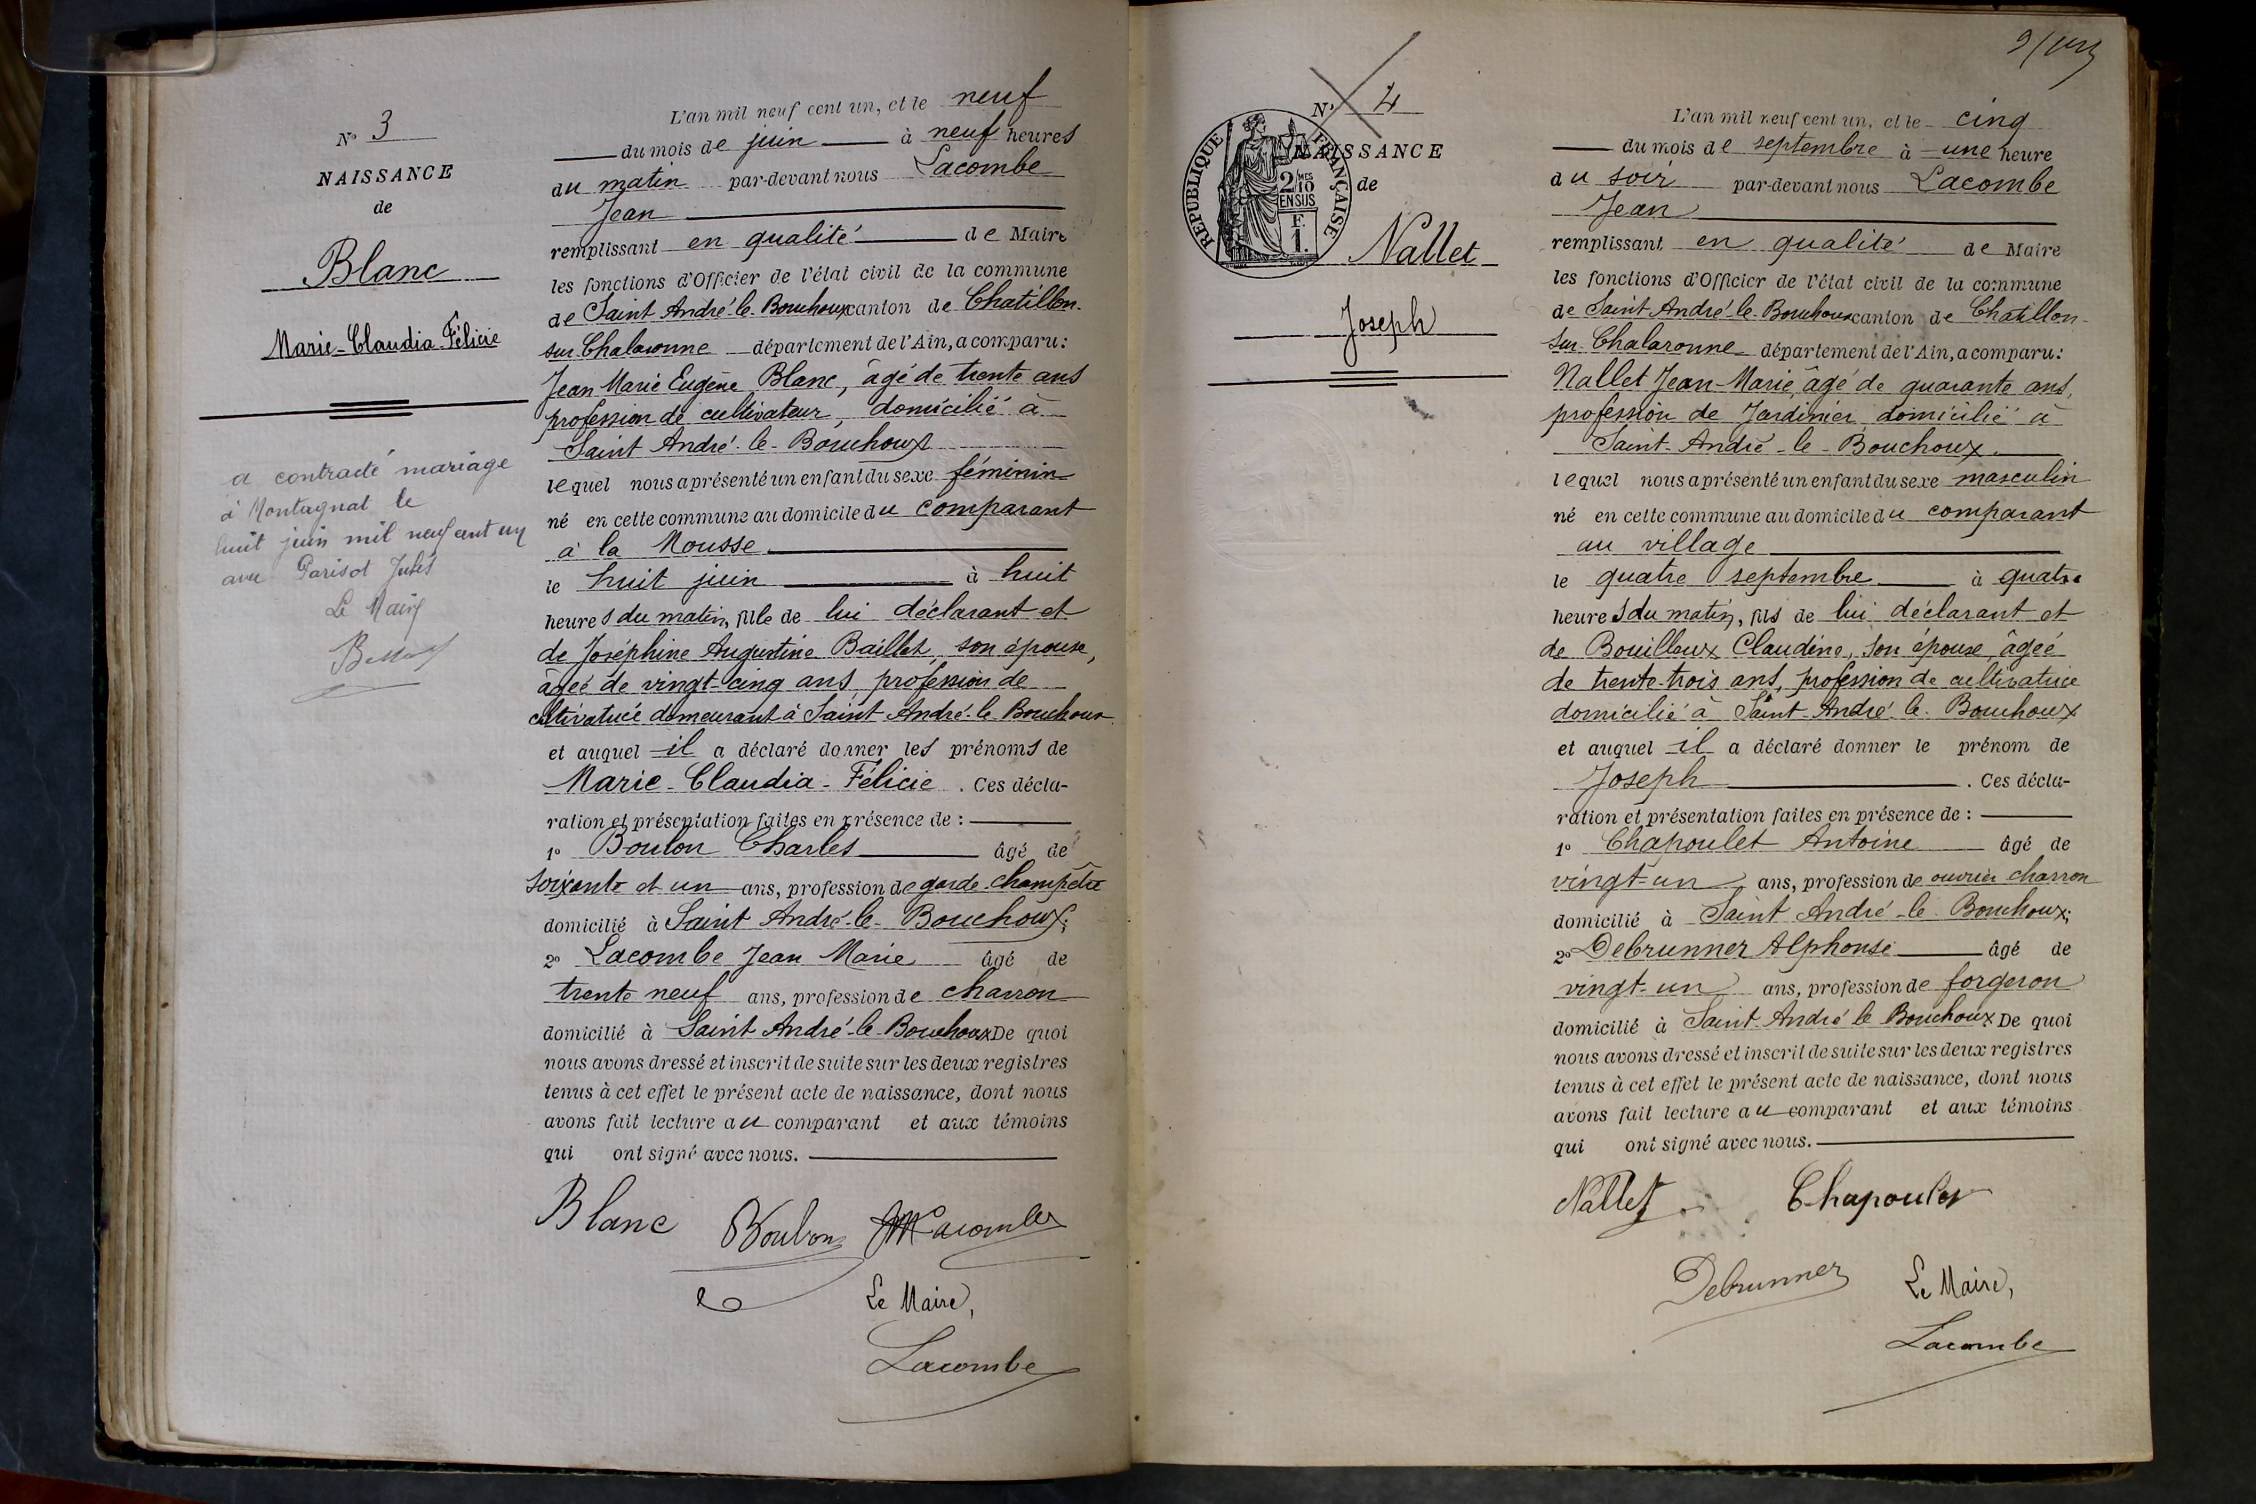 N° 3
NAISSANCE
de
Blanc
Marie-Claudia-Félicie
a contracté mariage
à Montagnat le
huit juin mil neuf cent un
avec Parisot Jules
Le Maire
L'an mil neuf cent un, et le neuf
du mois de juin à neuf heures
du matin par-devant nous Lacombe
Jean
remplissant en qualité de Maire
les fonctions d'Officier de l'état civil de la commune
de Saint André-le-Bouchoux canton de Chatillon-
sur Chalaronne département de l'Ain, a comparu:
Jean Marie Eugène Blanc, âgé de trente ans
profession de cultivateur, domicilié à
Saint André-le-Bouchoux
lequel nous a présenté un enfant du sexe féminin
né en cette commune au domicile du comparant
à la Mousse
le huit juin à huit
heures du matin, fille de lui déclarant et
de Joséphine Augustine Baillet, son épouse,
âgée de vingt-cinq ans profession de
cultivatrice demeurant à Saint-André-le Bouchoux
et auquel il a déclaré donner les prénoms de
Marie-Claudia-Félicie. Ces décla-
ration et présentation faites en présence de :
1° Boulon Charles âgé de
soixante et un ans, profession de garde-champêtre
domicilié à Saint André-le-Bouchoux;
2° Lacombe Jean Marie âgé de
trente neuf ans, profession de charron
domicilié à Saint André-le-Bouchoux De quoi
nous avons dressé et inscrit de suite sur les deux registres
tenus à cet effet le présent acte de naissance, dont nous
avons fait lecture au comparant et aux témoins
qui ont signé avec nous.
Blanc Boulon JMLacombe
Le Maire,
Lacombe
9/
N° 4
NAISSANCE
de
RÉPUBLIQUE FRANÇAISE
2/10 MES
EN SUS
F
1.
Nallet
Joseph
L'an mil neuf cent un, et le cinq
du mois de septembre à une heure
du soir par-devant nous Lacombe
Jean
remplissant en qualité de Maire
les fonctions d'Officier de l'état civil de la commune
de Saint André-le-Bouchoux canton de Chatillon-
sur-Chalaronne département de l'Ain, a comparu:
Nallet Jean-Marie, âgé de quarante ans,
profession de Jardinier domicilié à
Saint-André-le-Bouchoux
lequel nous a présenté un enfant du sexe masculin
né en cette commune au domicile du comparant
au village
le quatre septembre à quatre
heures du matin, fils de lui déclarant et
de Bouilloux Claudine, son épouse, âgée
de trente-trois ans, profession de cultivatrice
domicilié à Saint-André-le-Bouchoux
et auquel il a déclaré donner le prénom de
Joseph. Ces décla-
ration et présentation faites en présence de :
1° Chapoulet Antoine âgé de
vingt-un ans, profession de ouvrier charron
domicilié à Saint André-le-Bouchoux;
2° Debrunner Alphonse âgé de
vingt-un ans, profession de forgeron
domicilié à Saint-André le Bouchoux De quoi
nous avons dressé et inscrit de suite sur les deux registres
tenus à cet effet le présent acte de naissance, dont nous
avons fait lecture au comparant et aux témoins
qui ont signé avec nous.
Nallet Chapoulet
Debrunner Le Maire,
Lacombe